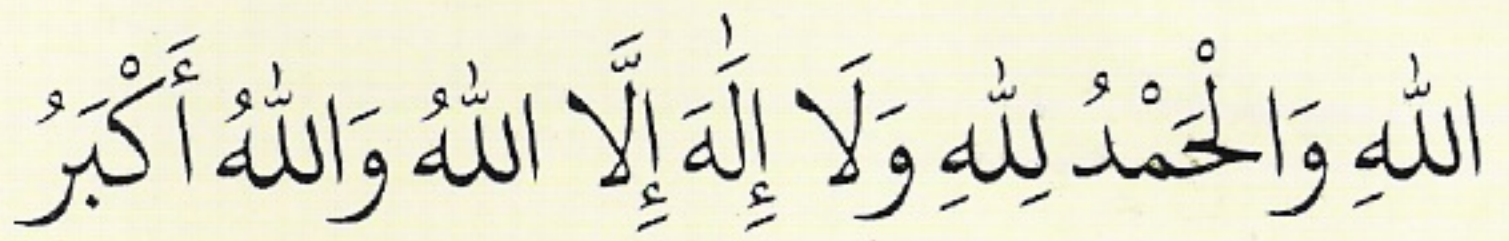 اللّٰهِ وَالْحَمْدُ لِلّٰهِ وَلَا إِلٰهَ إِلَّا اللّٰهُ وَاللّٰهُ أَكْبَرُ